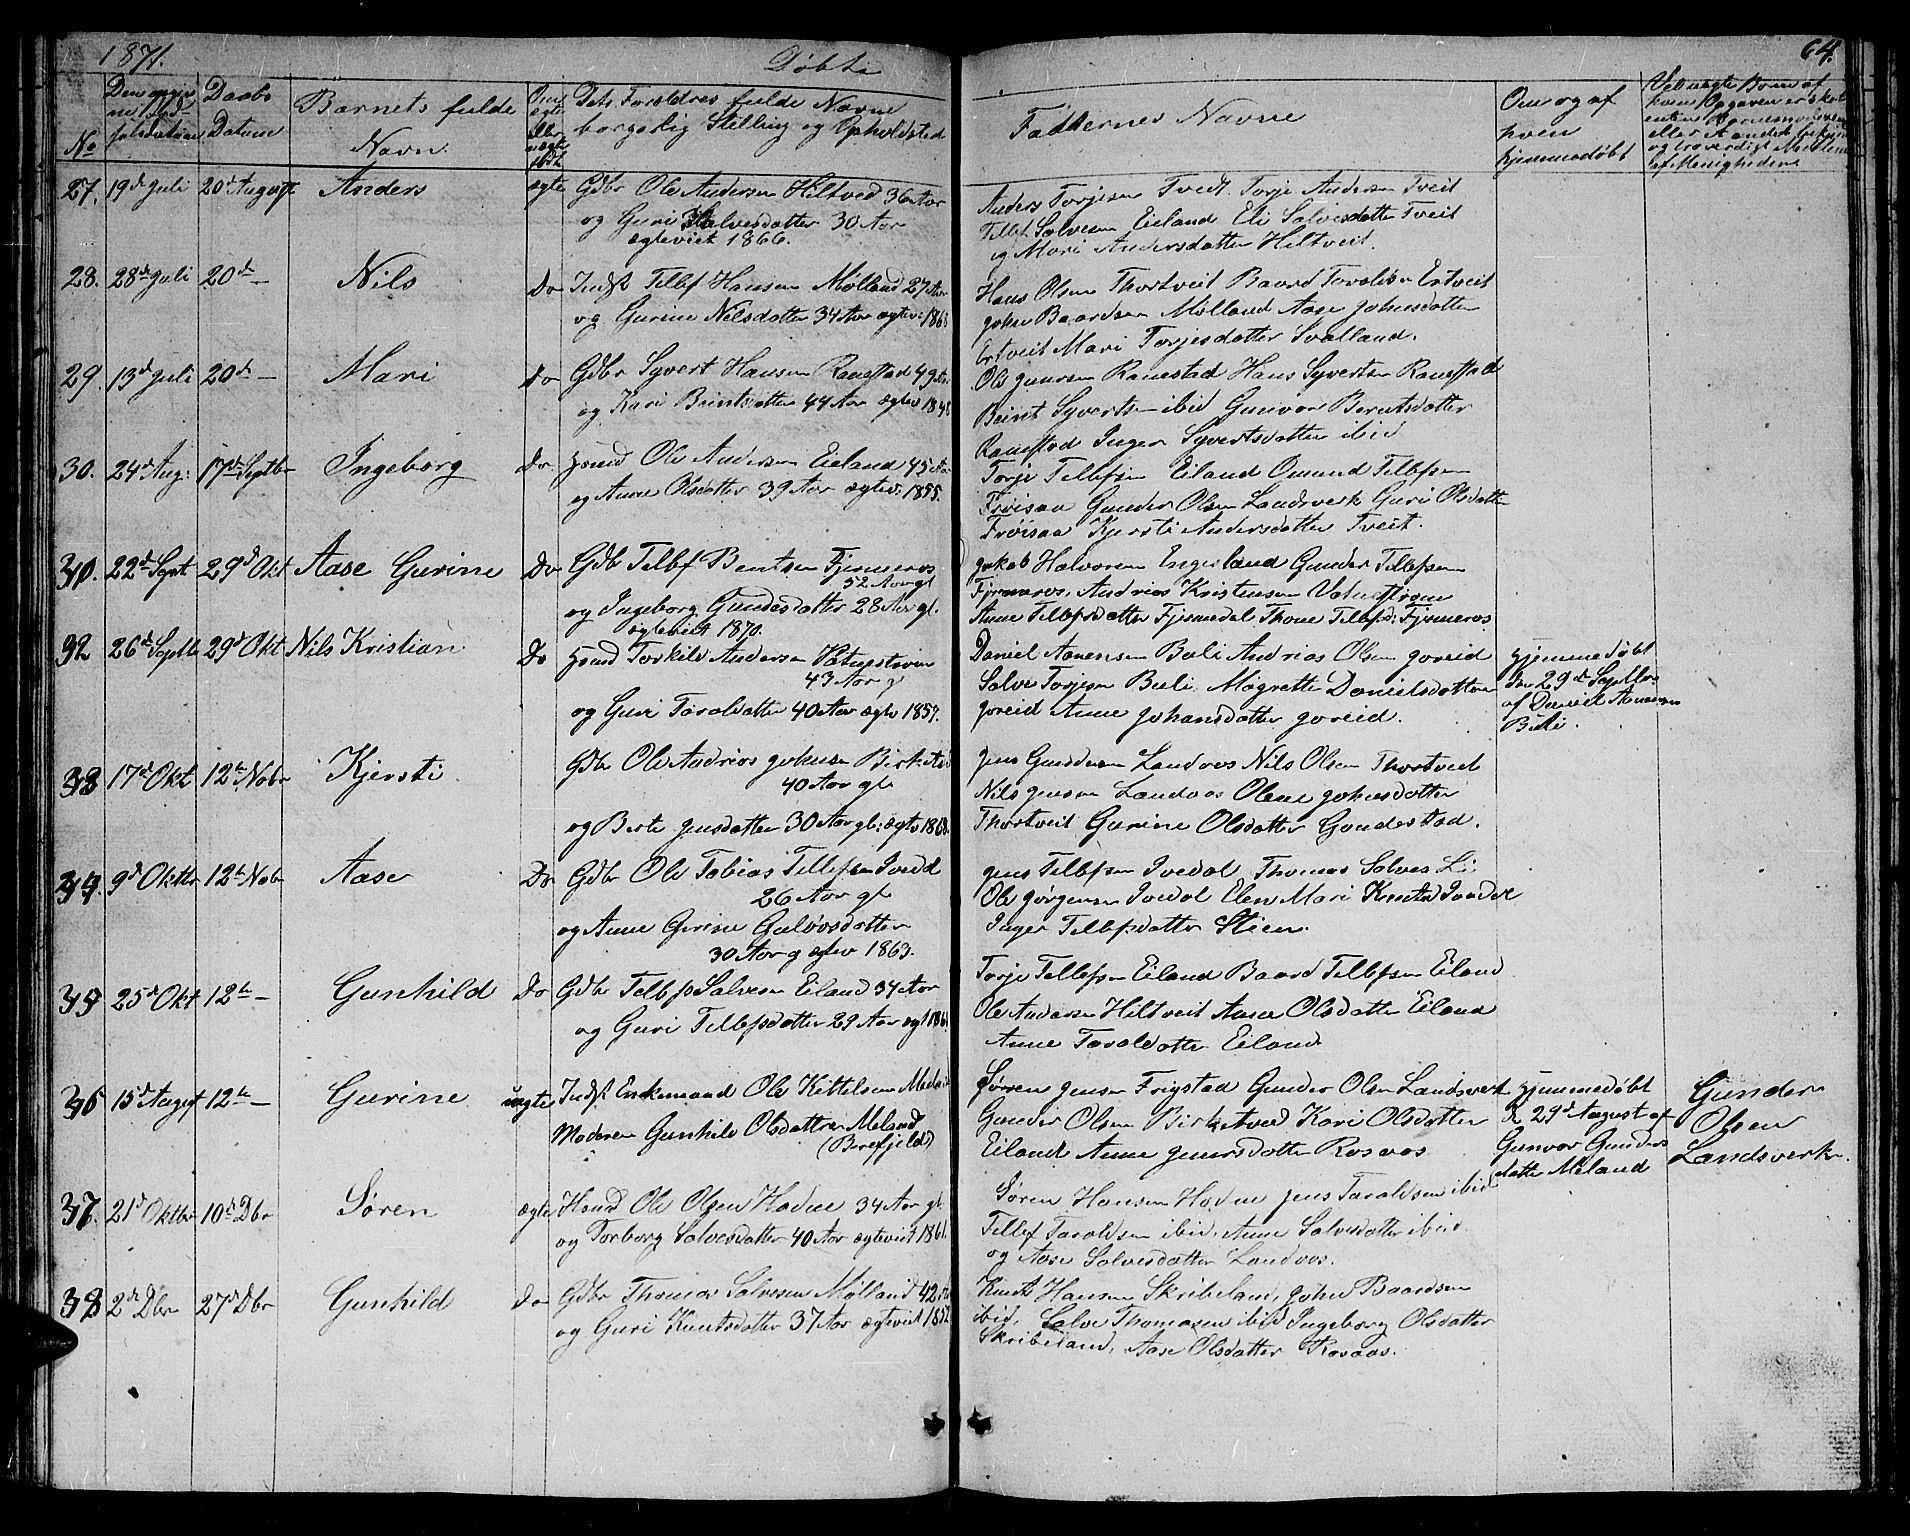 1871.
Döbte
64.
No
Den opgivne Fødselsdatum
Daabs Datum
Barnets fulde Navn.
Om ægte eller uægte født
Dets Forældres fulde Navne borgerlig Stilling og Opholdsted
Faddernes Navne
Om og af hven hjemmedøbt
Ved uægte Børn af hvem Opgaven er sket enten
eller et andet bekjent og troværdigt Medlem af Menigheden
27. 19de Juli 20de August Anders ægte Gdbr Ole Andersen Hiltved 36 Aar
og Guri Salvesdatter 30 Aar
ægteviet 1866.
Anders Torjesen Tvedt. Torje Andersen Tveit
Tellef Salvesen Eieland Eli Salvesdatter Tveit
og Mari Andersdatter Hiltveit.
28. 28de Juli 20de — Nils Do Indst Tellef Hansen Mølland 27 Aar
og Gurine Nilsdatter 34 Aar ægtev: 1868
Hans Olsen Thortveit Baard Taraldsen Ertveit
Johen Baardsen Mølland Aase Johnsdatter
Ertveit Mari Torjesdatter Svalland.
29. 13de Juli 20de — Mari Do Gdbr Syvert Hansen Ranestad 49 Aar
og Kari Beintsdatter 44 Aar ægtev 1848
Ole Gunarsen Ranestad Hans Syvertsen Ranestad
Beint Syvertsen ibid Gunvor Berntsdatter
Ranestad Inger Syvertsdatter ibid
30. 24de Aug: 17de Septbr Ingeborg Do Hsmd Ole Andersen Eieland 45 Aar
og Anne Olsdatter 39 Aar ægtev: 1855.
Torje Tellefsen Eiland Omund Tellefsen
Frøisaa Gunder Olsen Landsverk Guri Olsdatter
Frøisaa Kjersti Andersdatter Tveit.
30. 22de Sept 29de Okt Aase Gurine Do Gdb Tellef Bentsen Fjermeros
52 Aar gl
og Ingeborg Gundersdatter 28 Aar gl.
ægteviet 1870.
Jakob Halvorsen Engeland Gunder Tellefsen
Fjermeros, Andrias Kristensen Vatnestrøm
Anne Tellefsdatter Fjermedal Thone Tellefsd: Fjermeros.
32 26de Septb 29de Okt Nils Kristian Do Hsmd Torkild Andersen Vatnestrøm
43 Aar gl
og Guri Taraldatter 40 Aar ægtv 1857.
Daniel Aanensen Beli Andrias Olsen Joreid
Salve Torjesen Buli. Margrette Danielsdatter
Joreid Anne Johansdatter Joreid.
Hjemme døbt
den 29de Septbr
af Daniel Aanensen
Buli.
33 17de Okt 12te Nobr Kjersti Gdbr Ole Andrias Johnsen Birketved
40 Aar gl
og Berte Jensdatter 30 Aar gl: ægtv 1868
Jens Gundersen Landaas Nils Olsen Thortveit
Nils Jensen Landaas Olene Johnsdatter
Thortveit Gurine Olsdatter Gaudestad.
34. 9de Oktbr 12te Nobr Aase Do Gdbr Ole Tobias Tellefsen Ivedal
26 Aar gl
og Anne Gurine Gulovsdatter
30 Aar g ægtev 1863.
Jens Tellefsen Ivedal Thomas Salves Li
Ole Jørgensen Ivedal Elen Mari Knutsd Ivedal
Inger Tellefsdatter Stien.
35 25de Okt 12te — Gunhild Do Gdbr Tellef Salvesen Eiland 34 Aar
og Guri Tellefsdatter 29 Aar ægt 1861
Torje Tellefsen Eiland Baard Tellefsen Eiland
Ole Andersen Hiltveit Anne Olsdatter Eiland
Anne Taraldatter Eiland
36 15de August 12te — Gurine uægte Indst Enkemand Ole Kittelsen
Moderen Gunhild Olsdatter Meland
(Berefjeld)
Søren Jensen Frigstad Gunder Olsen Landsverk
Gunder Olsen Birketved Kari Olsdatter
Eiland Anne Gunarsdatter Rosaas
Hjemmedøbt
d 29de August af
Gunvor Gunders
datter Meland
Gunder
Olsen
Landsverk.
37. 21de Oktbr 10de Dbr Søren ægte Hsmd Ole Olsen Hodne 34 Aar gl.
og Torborg Salvesdatter 40 Aar ægteviet 1861.
Søren Hansen Hodne Jens Taraldsen ibid
Tellef Taraldsen ibid. Anne Salvesdatter ibid
og Aase Salvesdatter Landaas.
38 2de Dbr 27de Dbr Gunhild Do Gdbr Thomas Salvesen Mølland 42 Aar
og Guri Knutsdatter 37 Aar ægteviet 1852
Knut Hansen Skribeland, John Baardsen
ibid, Salve Thomasen ibid Ingeborg Olsdatter
Skribeland, Aase Olsdatter Rosaas.